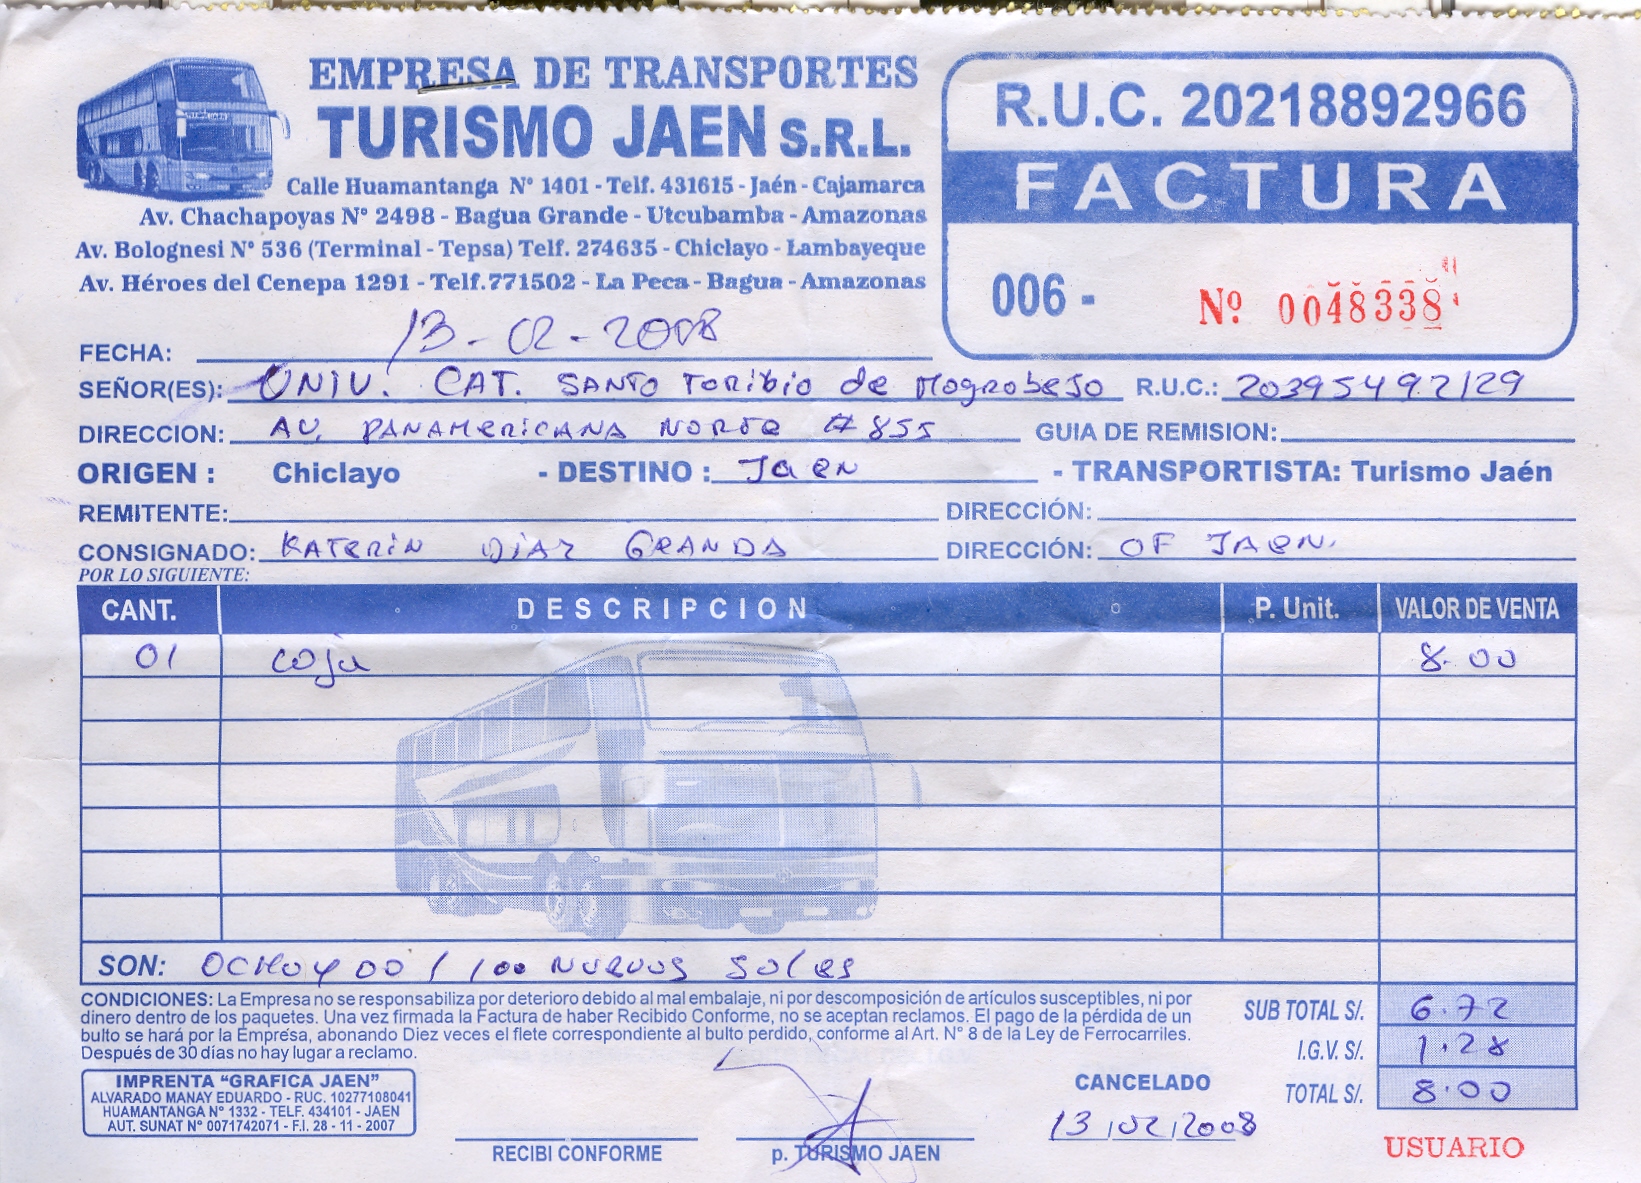 EMPRESA DE TRANSPORTES
TURISMO JAEN S.R.L.
Calle Huamantanga N° 1401 - Telf. 431615 - Jaén - Cajamarca
Av. Chachapoyas N° 2498 - Bagua Grande - Utcubamba - Amazonas
Av. Bolognesi N° 536 (Terminal - Tepsa) Telf. 274635 - Chiclayo - Lambayeque
Av. Héroes del Cenepa 1291 - Telf.771502 - La Peca - Bagua - Amazonas
R.U.C. 20218892966
FACTURA
006 - Nº 0048338
FECHA: 13-02-2008
SEÑOR(ES): UNIV. CAT. SANTO Toribio de Mogrobejo R.U.C.: 20395492129
DIRECCION: AV. PANAMERICANA NORTE # 855 GUIA DE REMISION:
ORIGEN : Chiclayo - DESTINO : Jaen - TRANSPORTISTA: Turismo Jaén
REMITENTE: DIRECCIÓN:
CONSIGNADO: KATERIN DIAZ GRANDA DIRECCIÓN: OF JAEN.
POR LO SIGUIENTE:
CANT. DESCRIPCION P. Unit. VALOR DE VENTA
01 caja 8.00
SON: OCHO Y 00 / 100 NUEVOS SOLES
CONDICIONES: La Empresa no se responsabiliza por deterioro debido al mal embalaje, ni por descomposición de artículos susceptibles, ni por
dinero dentro de los paquetes. Una vez firmada la Factura de haber Recibido Conforme, no se aceptan reclamos. El pago de la pérdida de un
bulto se hará por la Empresa, abonando Diez veces el flete correspondiente al bulto perdido, conforme al Art. N° 8 de la Ley de Ferrocarriles.
Después de 30 días no hay lugar a reclamo.
SUB TOTAL S/. 6.72
I.G.V. S/. 1.28
TOTAL S/. 8.00
IMPRENTA "GRAFICA JAEN"
ALVARADO MANAY EDUARDO - RUC. 10277108041
HUAMANTANGA N° 1332 - TELF. 434101 - JAEN
AUT. SUNAT N° 0071742071 - F.I. 28 - 11 - 2007
RECIBI CONFORME
p. TURISMO JAEN
CANCELADO
13/02/2008
USUARIO